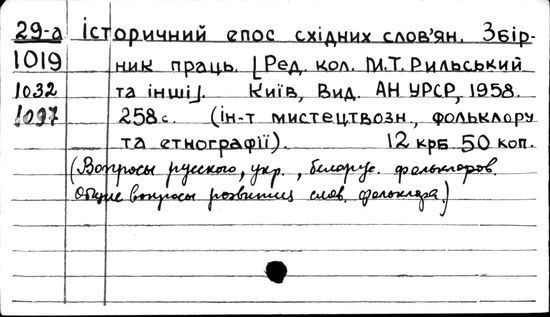 29-а історичний епос східних слов'ян. Збір-
1019 ник праць. [Ред. кол. М.Т. Рильський
1032 та інші]. Київ, Вид. АН УРСР, 1958.
1097 258 с. (ін-т мистецтвозн., фольклору
та етнографії). 12 крб. 50 коп.
(Вопросы русского, укр., белорус. фольклоров.
Общие вопросы развития слав. фольклора.)